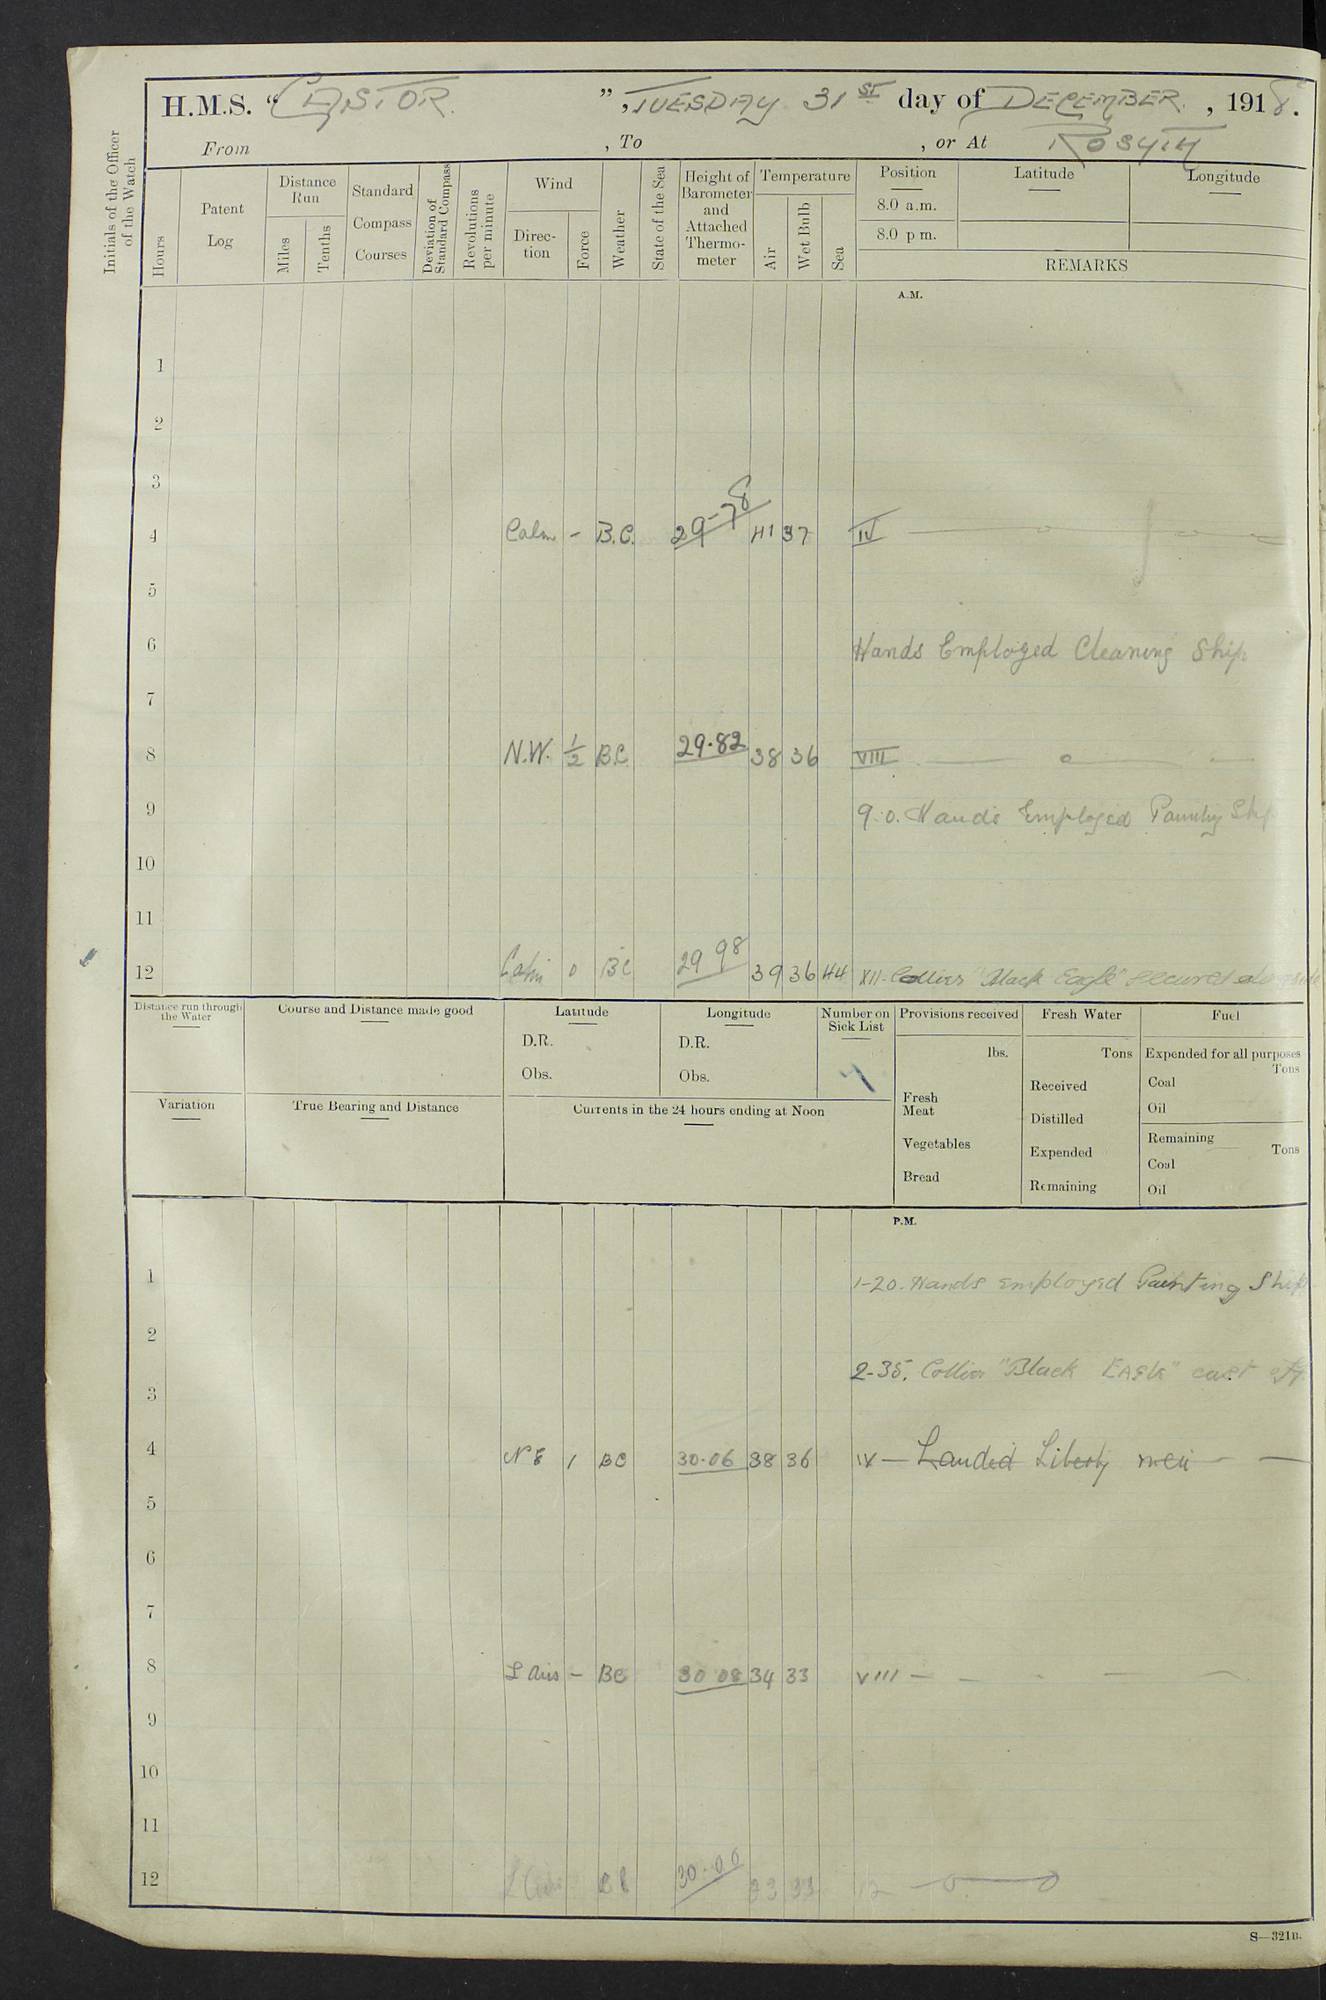 H.M.S. "CASTOR.", TUESDAY 31ST day of DECEMBER, 1918.
From , To , or At ROSYTH
Initials of the Officer of the Watch
Hours
Patent Log
Distance Run
Miles
Tenths
Standard Compass Courses
Deviation of Standard Compass
Revolutions per minute
Wind
Direc-tion
Force
Weather
State of the Sea
Height of Barometer and Attached Thermo-meter
Temperature
Air
Wet Bulb
Sea
Position
8.0 a.m.
8.0 p m.
Latitude
Longitude
REMARKS
A.M.
1
2
3
4 Calm - B.C. 29-78 41 37 IV
5
6 Hands Employed Cleaning Ship
7
8 N.W. 1/2 B.C. 29.82 38 36 VIII
9 9.0. Hands Employed Painting Ship
10
11
12 Calm 0 BC 29 98 39 36 44 XII- Collier "Black Eagle" secured alongside
Distance run through the Water
Course and Distance made good
Latitude
D.R.
Obs.
Longitude
D.R.
Obs.
Number on Sick List
Provisions received
lbs.
Fresh Meat
Vegetables
Bread
Fresh Water
Tons
Received
Distilled
Expended
Remaining
Fuel
Expended for all purposes
Tons
Coal
Oil
Remaining
Tons
Coal
Oil
Variation
True Bearing and Distance
Currents in the 24 hours ending at Noon
P.M.
1 1-20. Hands employed Painting Ship
2
2-35. Collier "Black EAGLE" cast off
3
4 NE 1 BC 30.06 38 36 IV — Landed Liberty men —
5
6
7
8 L Airs - BC 30 08 34 33 VIII —
9
10
11
12 L Airs 30.06 33 33 12
S—321B.